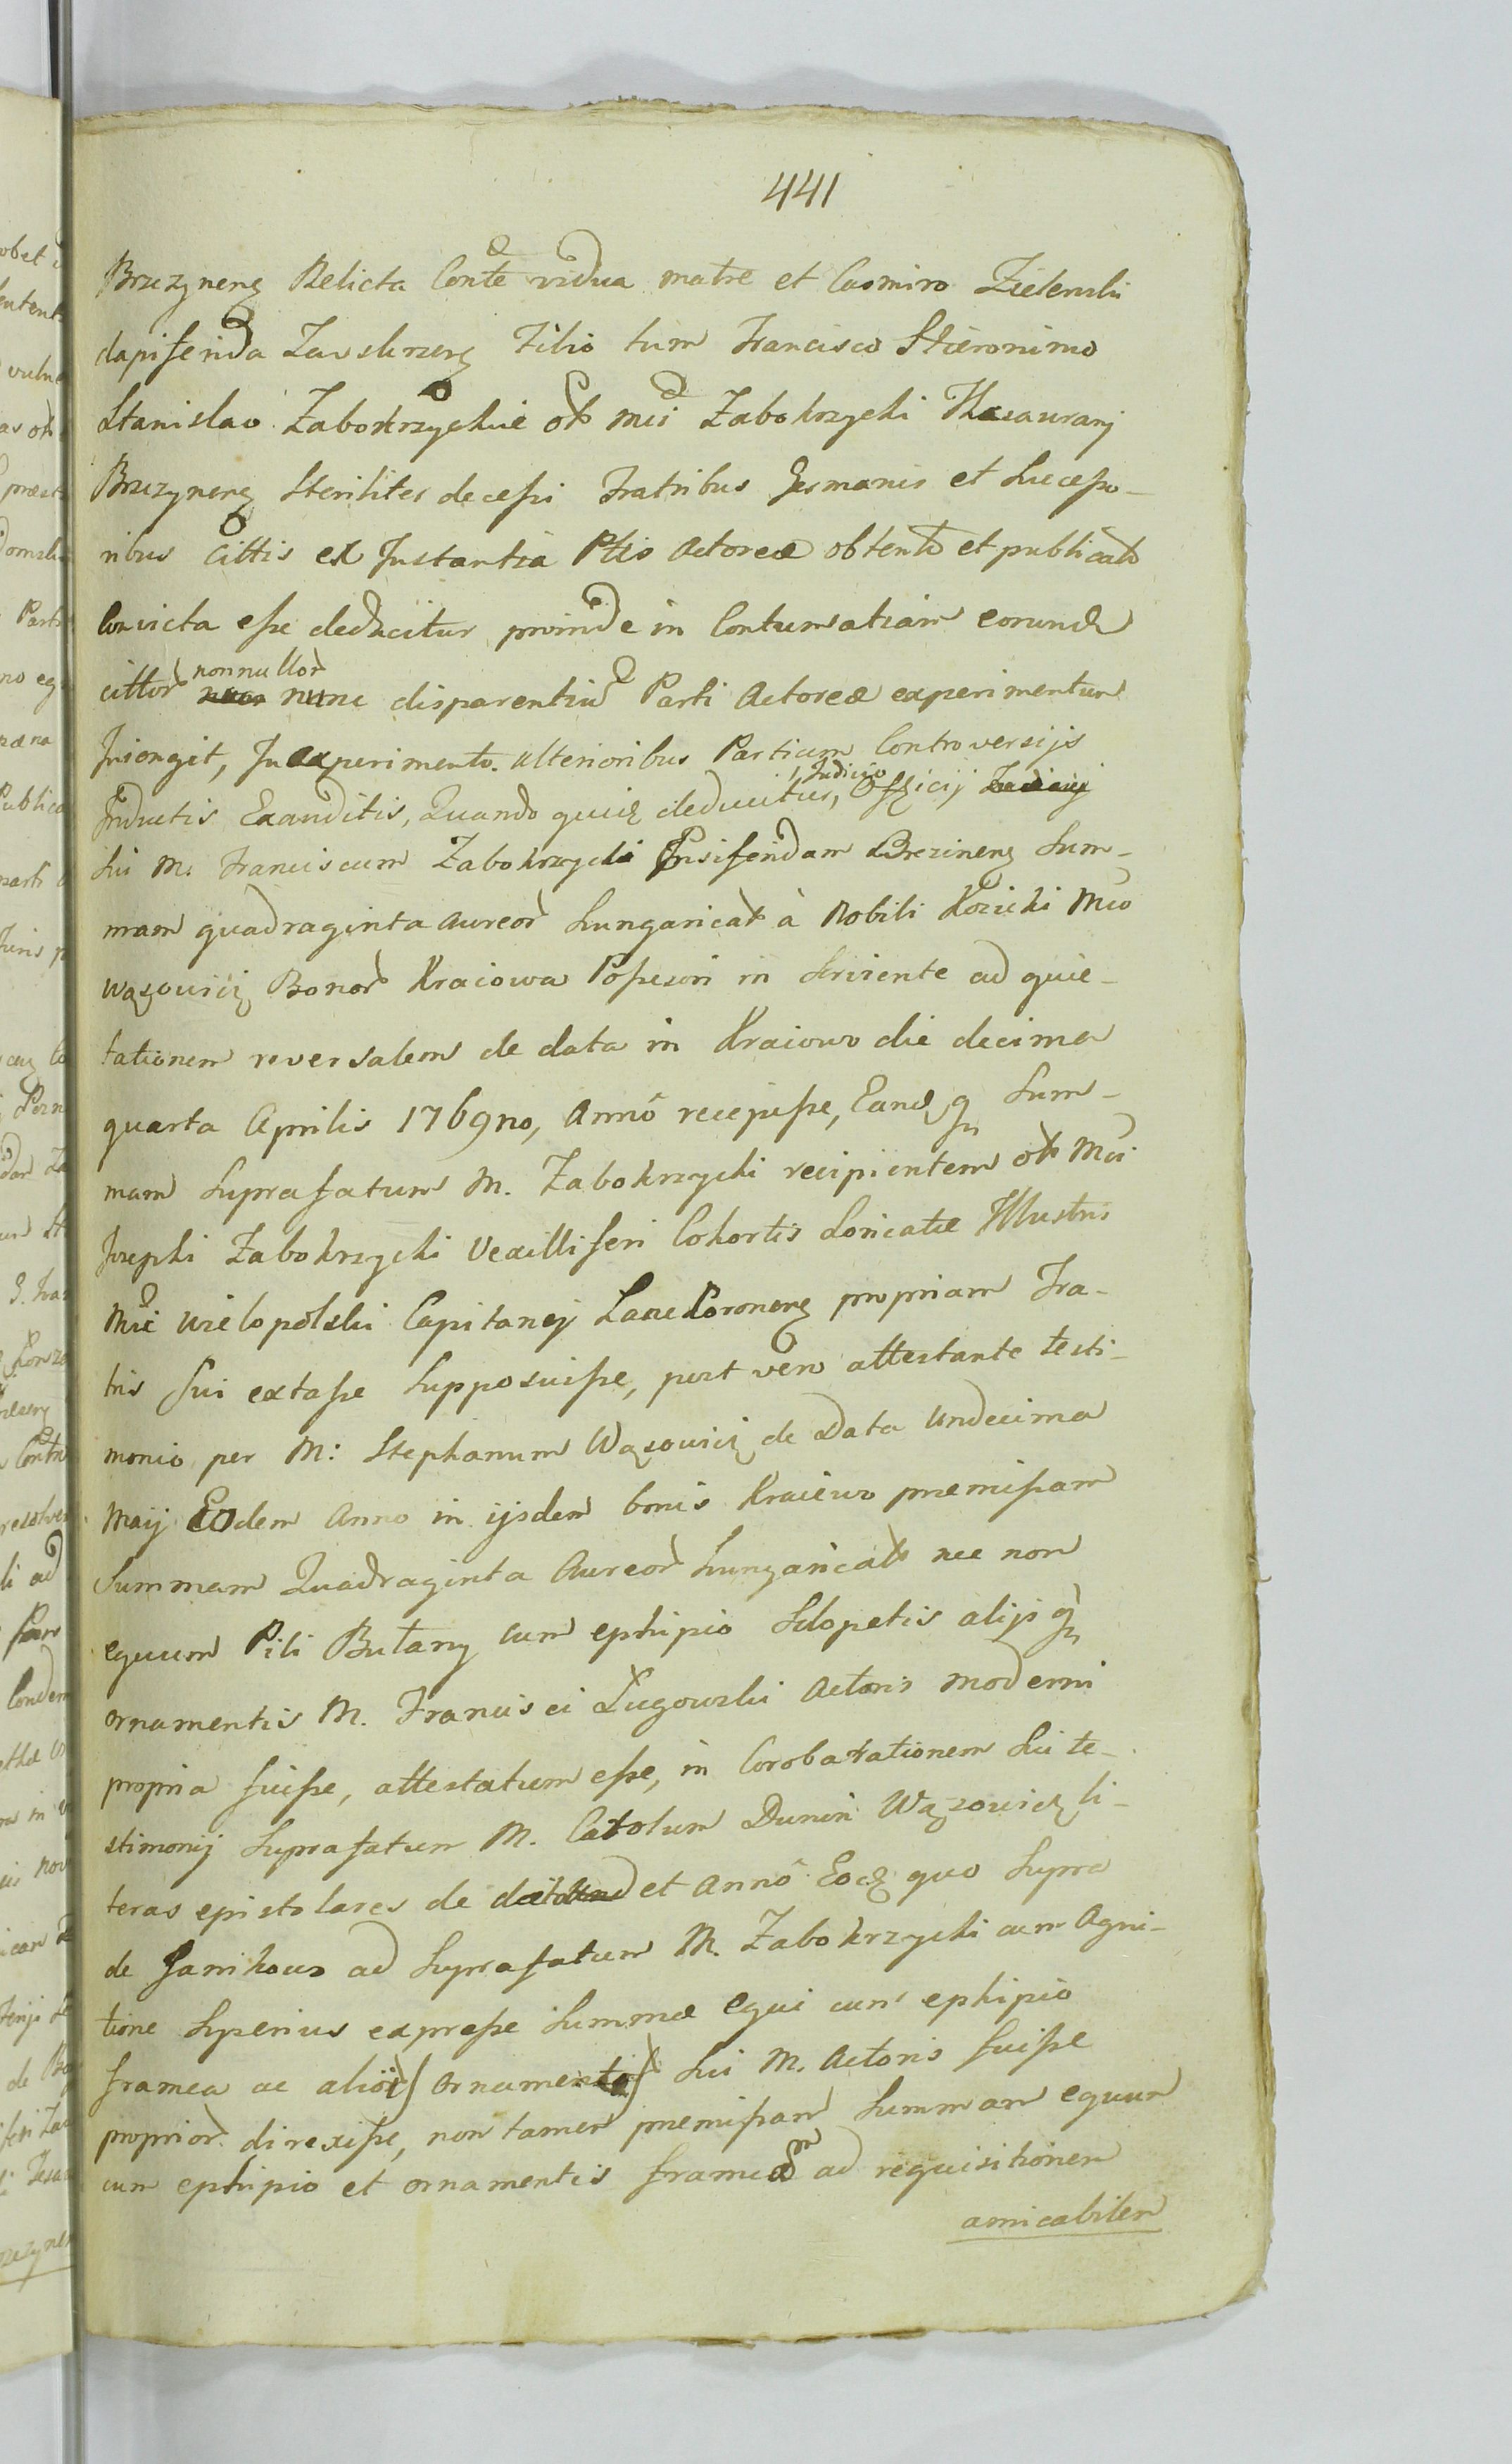 441
Brzezynens Relicta Conte vidua matre et Casmiro Zielenski
dapiferida Zawskrzens Filio tum Francisco Hieronimo
Stanislao Zabokrzyckie ol Mci Zabokrzycki Thesaurarij
Brzezynens Steriliter decessi Fratribus Germanis et Successo-
ribus Cittis ex Instantia Ptis Actoreæ obtento et publicato
Convicta esse deducitur proinde in Contumatiam eorund
cittor nonnullor nunc disparentiu Parti Actoreæ experimentum
Iniongit, In experimento ulterioribus Partium Controversijs
Inductis Exauditis, Quando quid deducitur, Judicio Officij
sui M. Franciscum Zabokrzycki Ensiferidam Brezinens Sum-
mam quadraginta aureor hungarical à Nobili Kozicki Mco
Wąsowicz Bonor Kraiowa Possesori in serviente ad quie-
tationem reversalem de data in Kraiowo die decima
quarta Aprilis 1769no, Annô recepisse, Eandq Sum-
mam Suprafatum M. Zabokrzycki recipientem ol Mci
Josephi Zabokrzycki Vexilliferi Cohortis Loricatæ Illustris
Mci Wielopolski Capitanej Lanckoronens propriam Fra-
tris sui extasse Supposuisse, post vero attestante testi-
monio per M: Stephanum Wąsowicz de Data Undecima
Maij Eodem Anno in ijsdem bonis Kraiewo præmissam
Summam Quadraginta Aureor hungarical nec non
equum Pili Bulany cum ephipio Sclopetis alijsq
ornamentis M. Francisci Ługowski Actoris moderni
propria fuisse, attestatum esse, in Corobaratationem sui te-
stimonij Suprafatum M. Carolum Dunin Wązowicz li-
teras epistolares de et Annô Eod quo Supra
de Janikowo ad Suprafatum M. Zabokrzycki cum Agni-
tione Superius expresse Summæ Equi cum ephipio
framea ac alior ornamento sui M. Actoris fuisse
proprior direxisse, non tamen præmissam Summam equum
cum ephipio et ornamentis frameam ad requisitionem
amicabilem